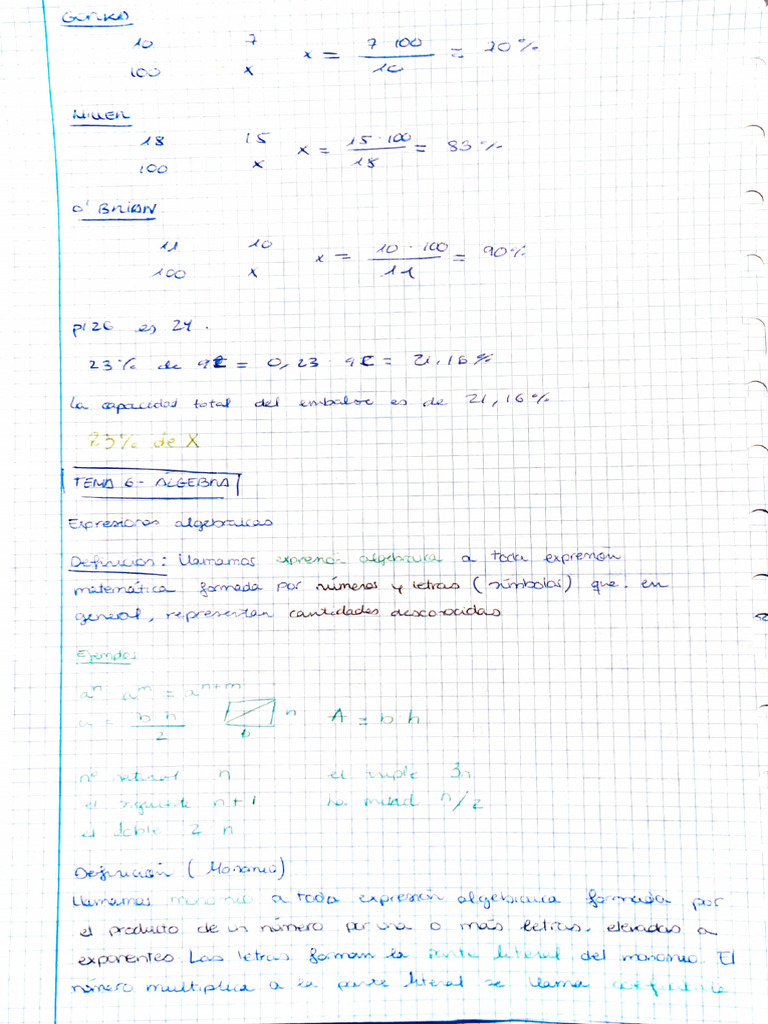 10 7 x = 7 · 100 / 10 = 70%
100 x
MILLER
18 15 x = 15 · 100 / 18 = 83%
100 x
O'BRIAN
11 10 x = 10 · 100 / 11 = 90%
100 x
p126 es 24.
23% de 92 = 0,23 · 92 = 21,16%
La capacidad total del embalse es de 21,16%
23% de X
TEMA 6 - ÁLGEBRA
Expresiones algebraicas
Definición: Llamamos expresión algebraica a toda expresión
matemática formada por números y letras (símbolos) que, en
general, representan cantidades desconocidas
Ejemplos
aⁿ aᵐ = aⁿ⁺ᵐ
= b h / 2 h b A = b h
nº natural n el triple 3n
el siguiente n+1 la mitad n/2
el doble 2 n
Definición (Monomio)
Llamamos monomio a toda expresión algebraica formada por
el producto de un número por una o más letras, elevadas a
exponentes. Las letras forman la parte literal del monomio. El
número multiplica a la parte literal se llama coeficiente